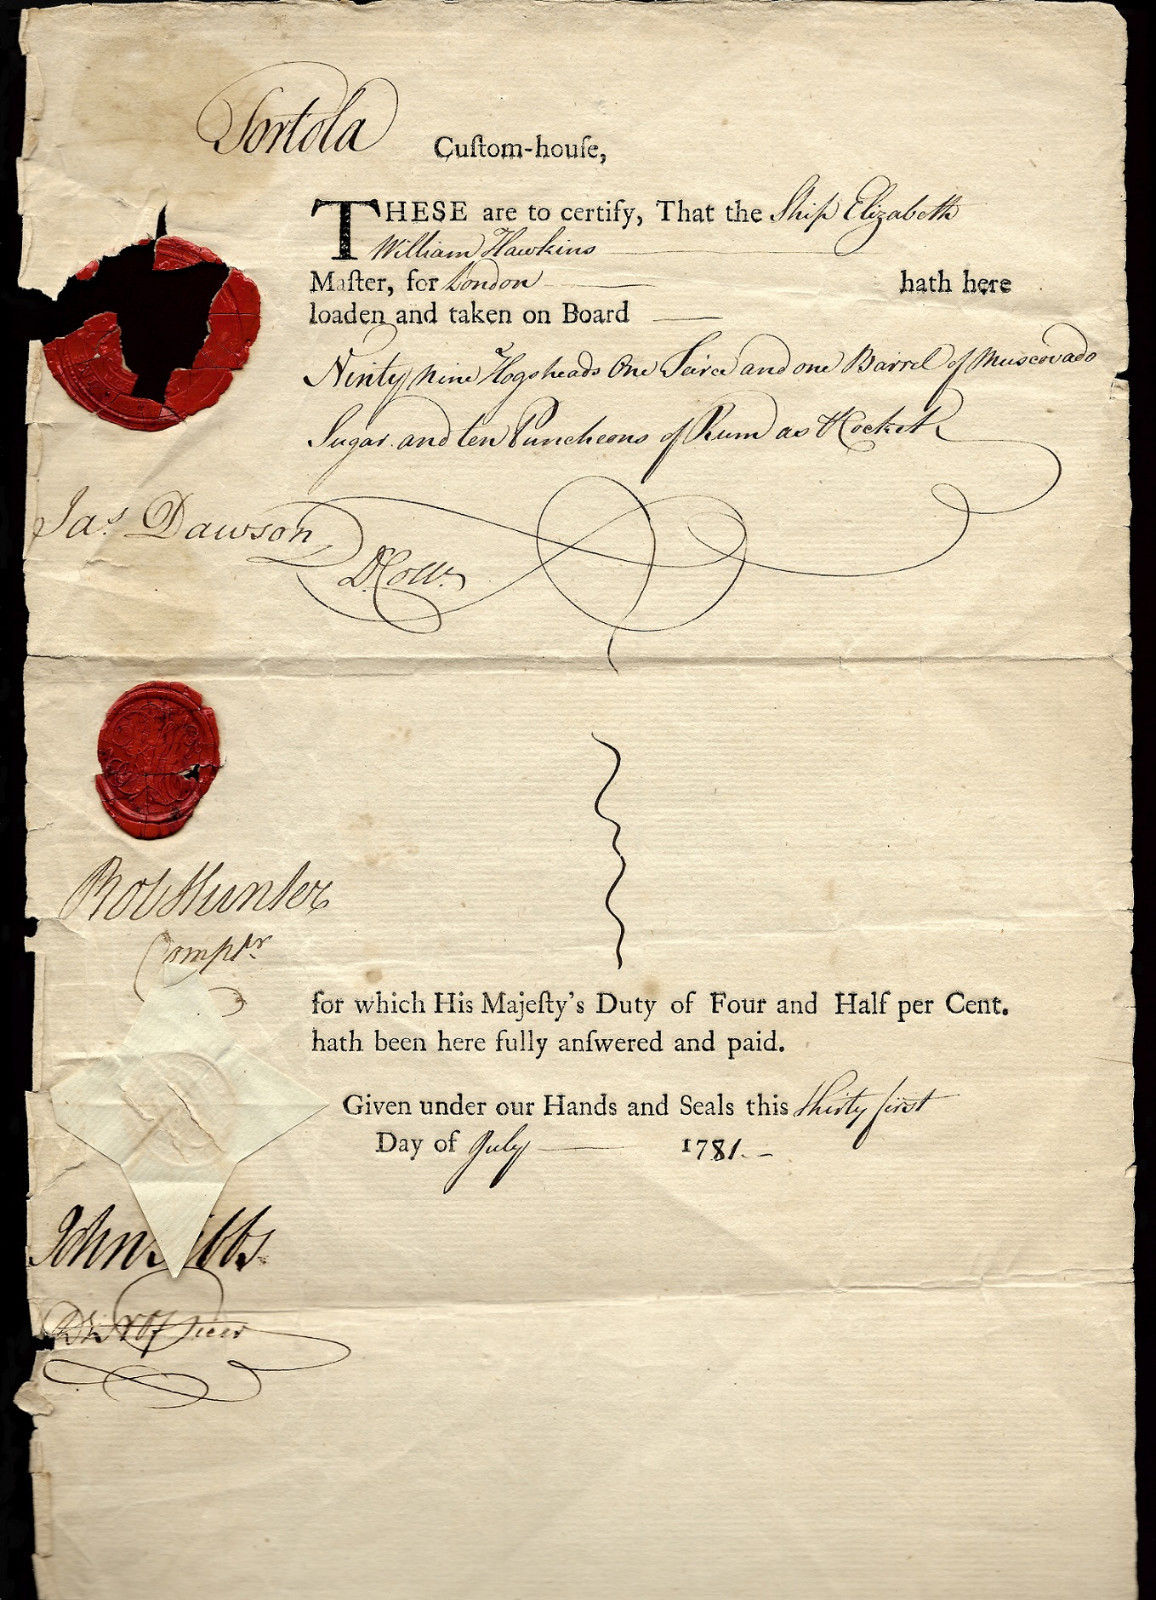 Tortola
Cuſtom-houſe,
THESE are to certify, That the Ship Elizabeth
William Hawkins
Maſter, for London hath here
loaden and taken on Board
Ninty nine Hogsheads One Teirce and one Barrel of Muscovado
Sugar and ten Puncheons of Rum as Kocket
Jas. Dawson
D. Collr.
Robt Hunter
Comptr.
for which His Majeſty's Duty of Four and Half per Cent.
hath been here fully anſwered and paid.
Given under our Hands and Seals this thirty first
Day of July 1781.
John ibbs